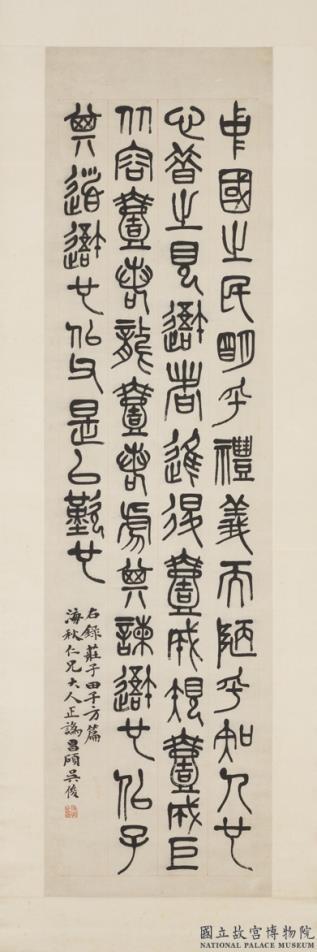 中國之民明乎禮義而陋乎知人也
心昔之見吾者進退壹成規壹成巨
从容壹若龍壹若虎其諫吾也似子
其道吾也似父是以歎也
右錄莊子田子方篇
海秋仁兄大人正譌昌碩吳俊
國立故宮博物院
NATIONAL PALACE MUSEUM